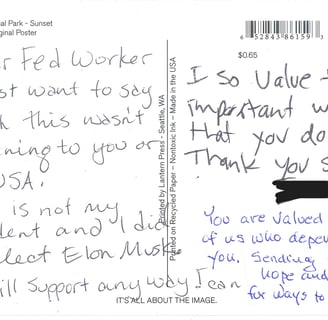 al Park - Sunset
ginal Poster
r Fed Worker
st want to say
h this wasn't
ening to you or
USA.
is not my
dent and I did
lect Elon Musk.
ill Support any way I can
6 52843 86159 3
$0.65
Printed by Lantern Press - Seattle, WA
Printed on Recycled Paper – Nontoxic Ink – Made in the USA
I so value t
important w
that you do
Thank you s
You are valued
of us who depe
you. Sending
hope and
for ways to
IT'S ALL ABOUT THE IMAGE.